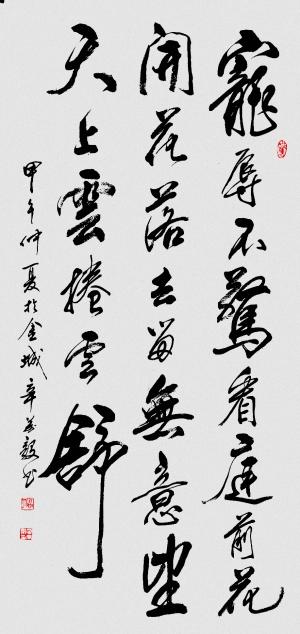 寵辱不驚看庭前花
開花落去留無意望
天上雲捲云舒
甲午仲夏於金城辛